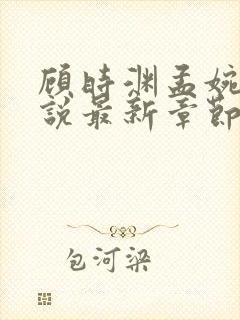 顾时渊孟婉
说最新章节
包河梁